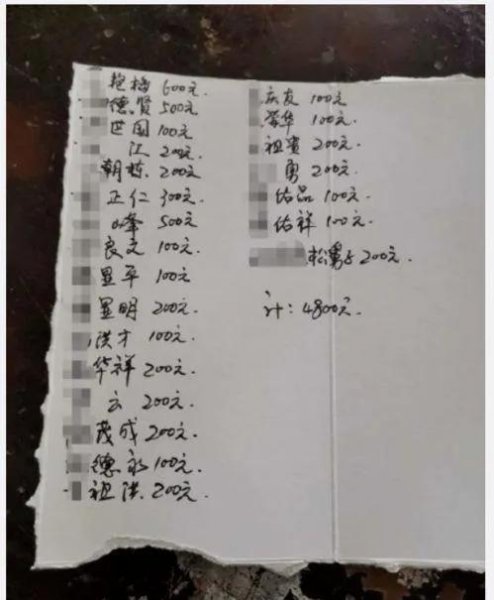 抱榙 600元.
德贤 500元
世国 100元
江 200元.
朝栋. 200元
正仁 300元
峰 500元
良文 100元.
显平 100元
显明 200元.
洪才 100元.
华祥 200元.
云 200元.
茂成 200元.
德永 100元.
祖洪. 200元.
庆友 100元
荣华 100元.
祖贵 200元.
勇 200元.
佑品 100元.
佑祥 100元.
松 200元.
计: 4800元.